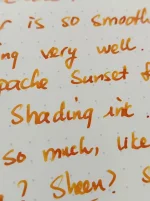 r is so smooth
ng very well.
pache Sunset f
Shading int.
so much, Ute
? Sheen? S